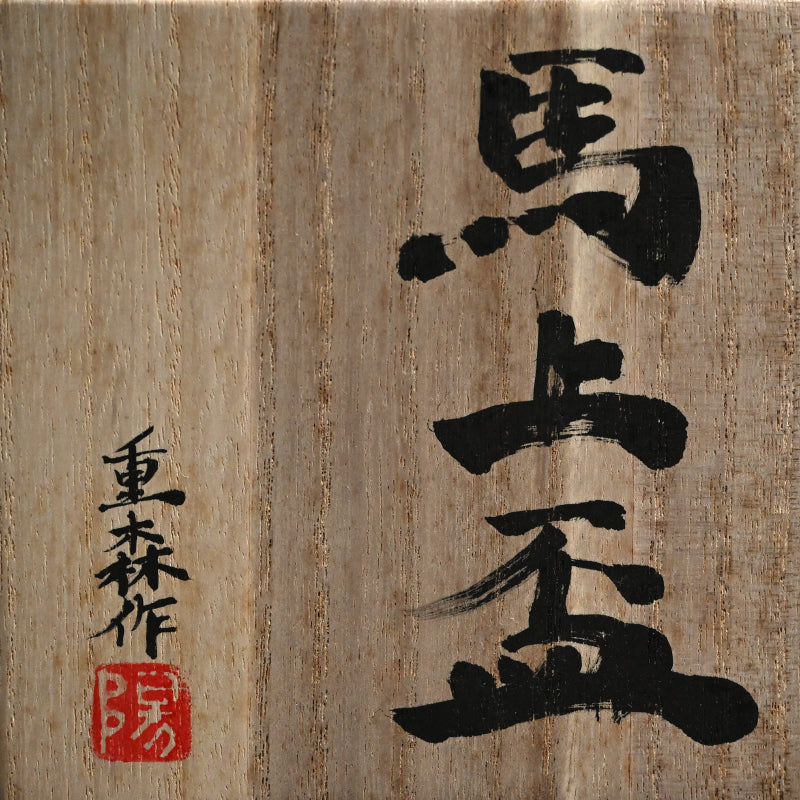 馬上盃
重森作
陽